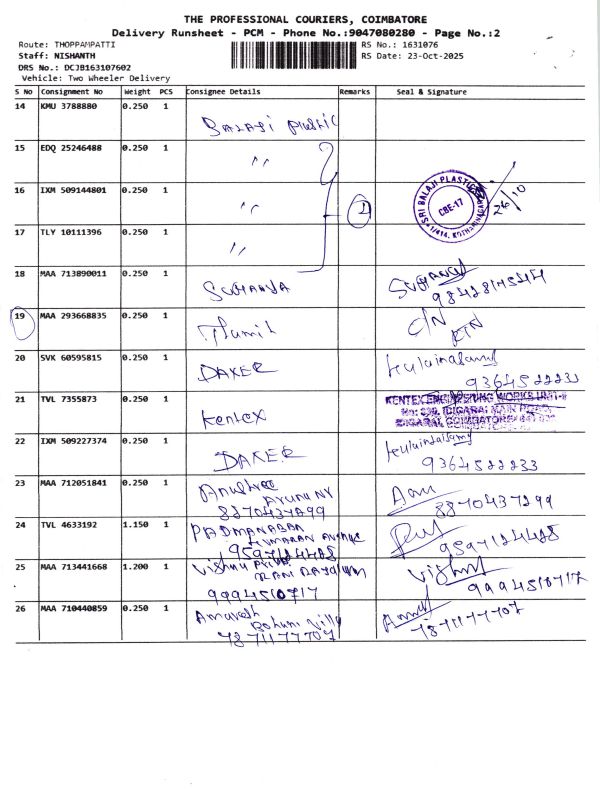 THE PROFESSIONAL COURIERS, COIMBATORE
Delivery Runsheet - PCM - Phone No.:9047080280 - Page No.:2
Route: THOPPAMPATTI
RS No.: 1631076
Staff: NISHANTH
RS Date: 23-Oct-2025
DRS No.: DCJB163107602
Vehicle: Two Wheeler Delivery
S No Consignment No Weight PCS Consignee Details Remarks Seal & Signature
14 KMU 3788880 0.250 1
Balaji plastic
15 EDQ 25246488 0.250 1
"
16 IXM 509144801 0.250 1
"
SRI BALAJI PLASTICS
CBE-17
24/10
17 TLY 10111396 0.250 1
"
18 MAA 713890011 0.250 1
Sugranya
19 MAA 293668835 0.250 1
Tamil
C/N
RTN
20 SVK 60595815 0.250 1
DAKER
kulainasamy
9364522233
21 TVL 7355873 0.250 1
kentex
KENTEX ENGINEERING WORKS UNIT-II
IDIGARAI MAIN ROAD
IDIGARAI, COIMBATORE
22 IXM 509227374 0.250 1
DAKER
9364522233
23 MAA 712051841 0.250 1
Anushree
8870437299
8870437299
24 TVL 4633192 1.150 1
PADMANABAN
KUMARAN AVENUE
9597124428
9597124428
25 MAA 713441668 1.200 1
Vishnu Priya
9994510717
Vishnu
9994510717
26 MAA 710440859 0.250 1
Amaresh
7871177707
7871177707